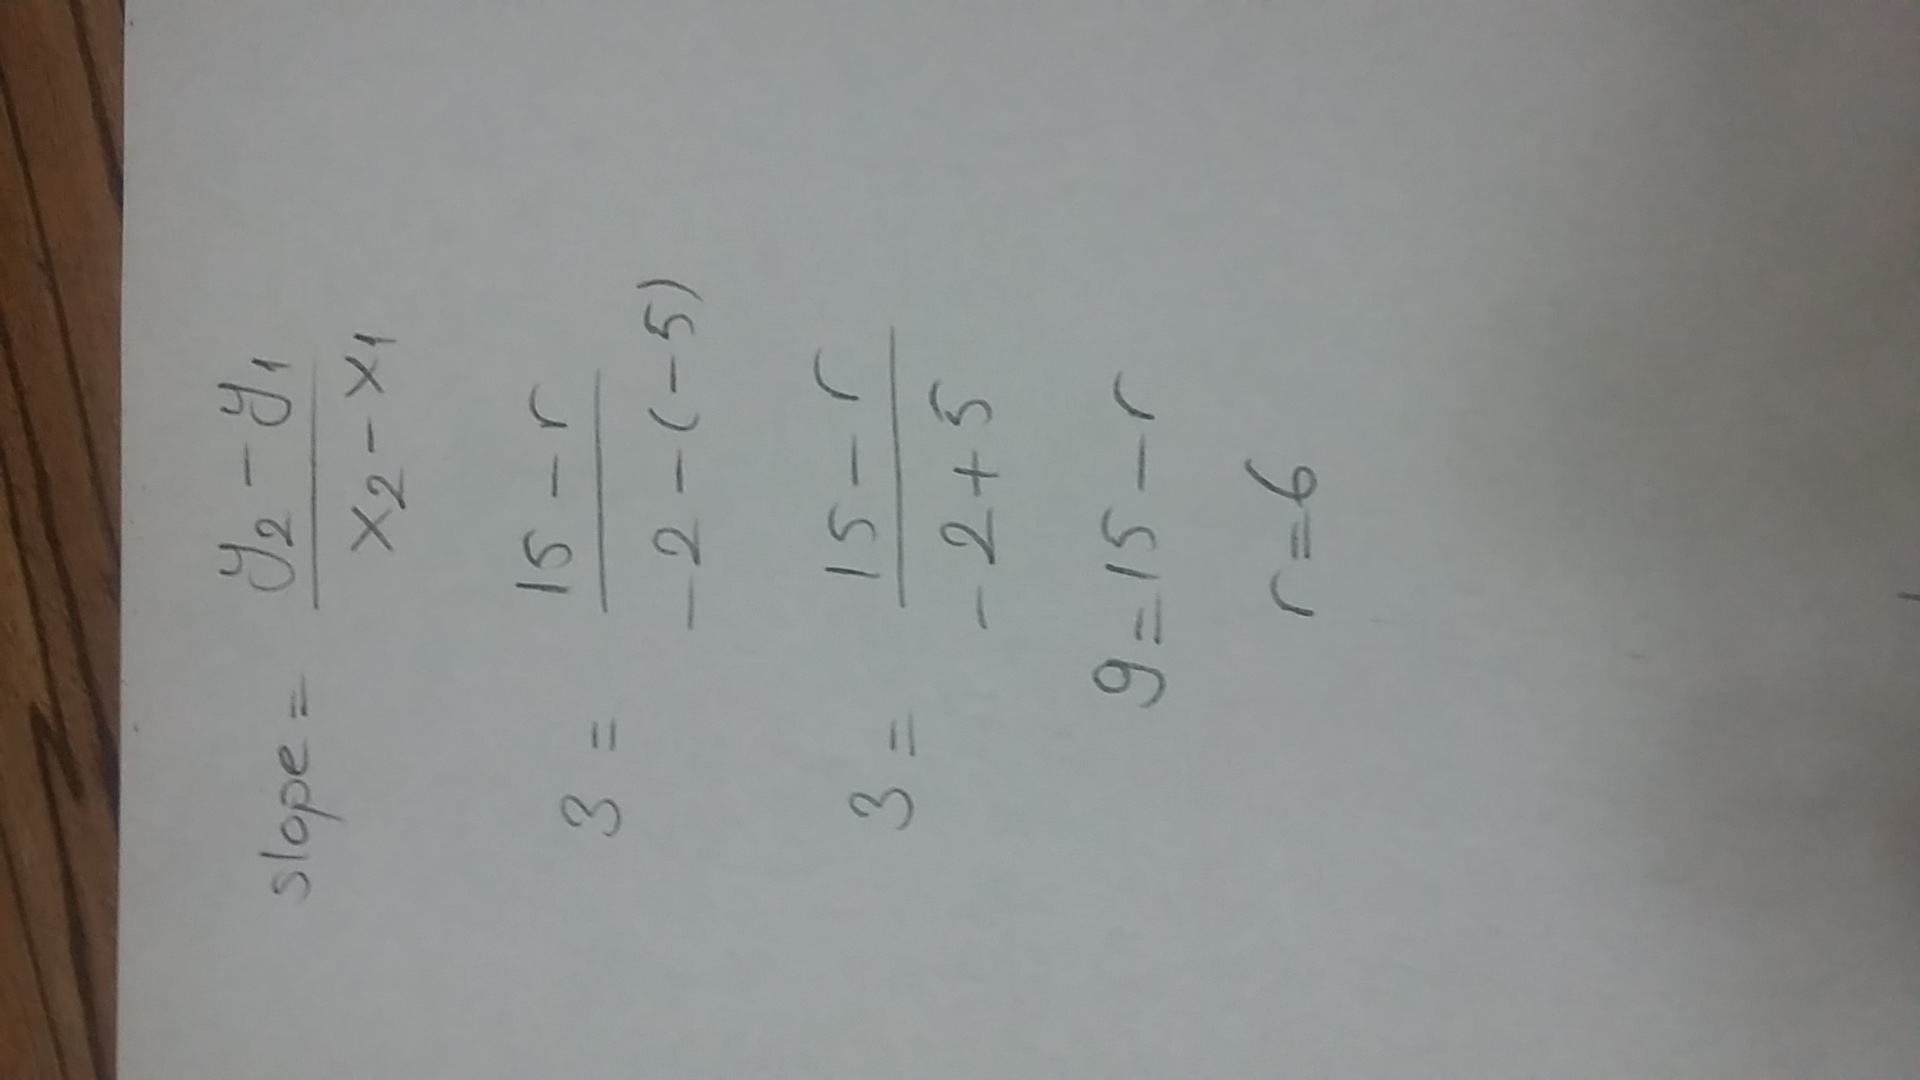 slope = y₂ - y₁ / x₂ - x₁
3 = 15 - r / -2 - (-5)
3 = 15 - r / -2 + 5
9 = 15 - r
r = 6